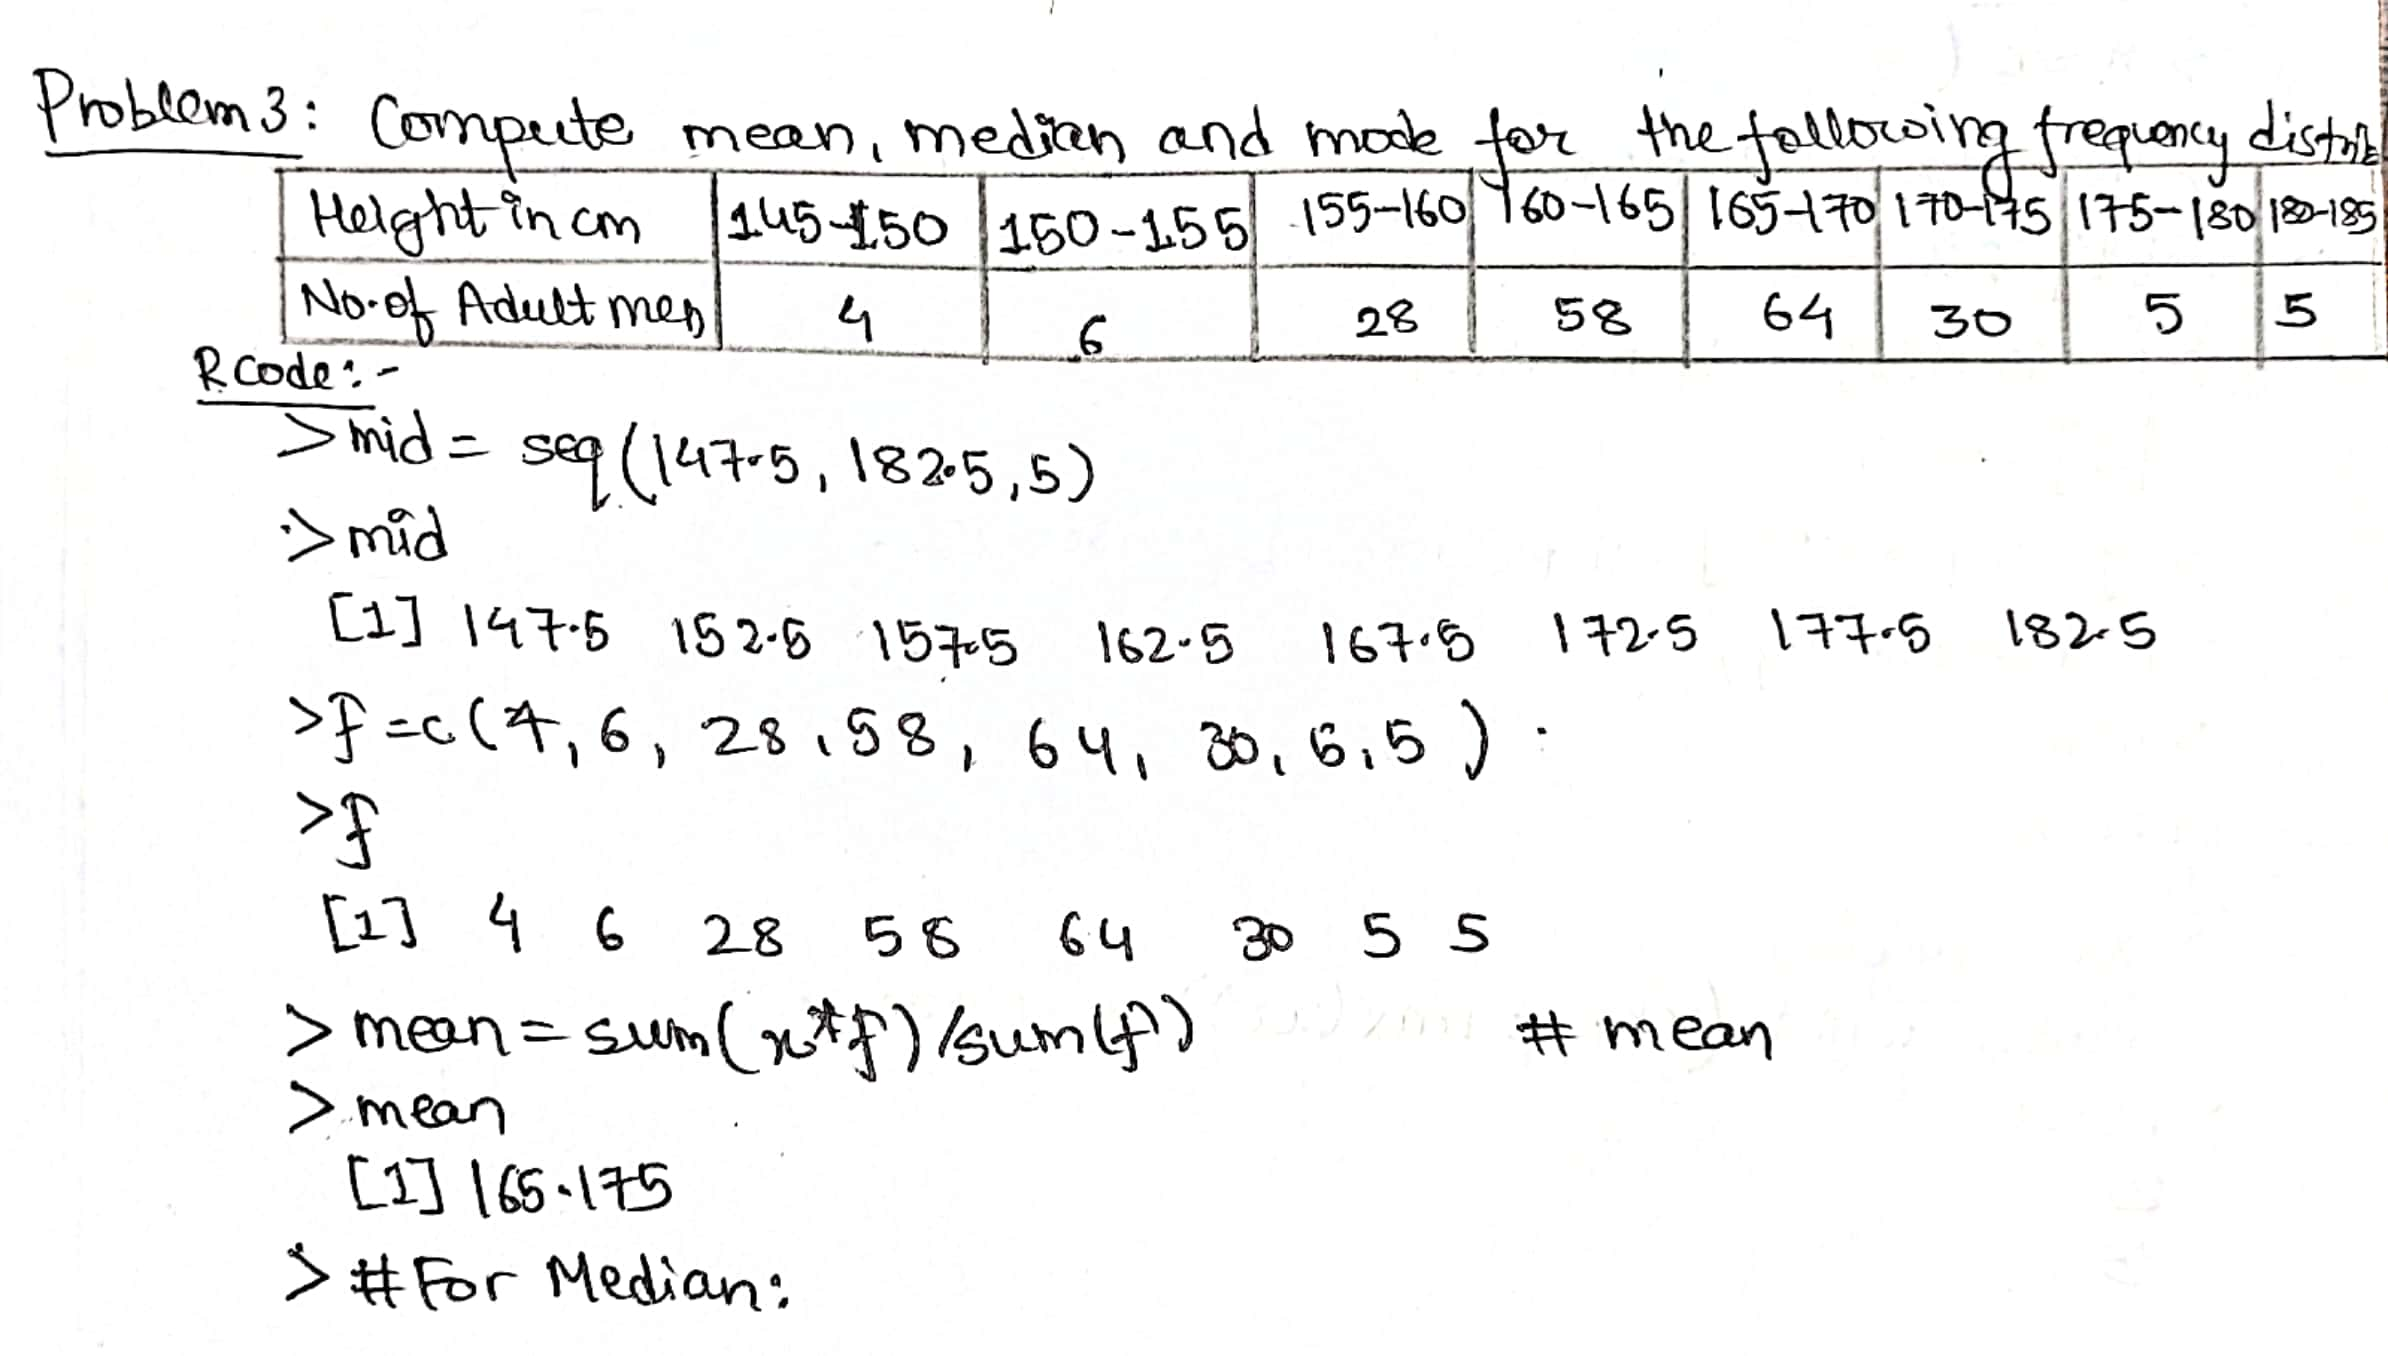 Problem 3: Compute mean, median and mode for the following frequency
Height in cm 145-150 150-155 155-160 160-165 165-170 170-175 175-180 180-185
No. of Adult men 4 6 28 58 64 30 5 5
R code:-
> mid = seq(147.5, 182.5, 5)
> mid
[1] 147.5 152.5 157.5 162.5 167.5 172.5 177.5 182.5
> f = c(4, 6, 28, 58, 64, 30, 5, 5)
> f
[1] 4 6 28 58 64 30 5 5
> mean = sum(x*f)/sum(f) # mean
> mean
[1] 165.175
> # For Median: